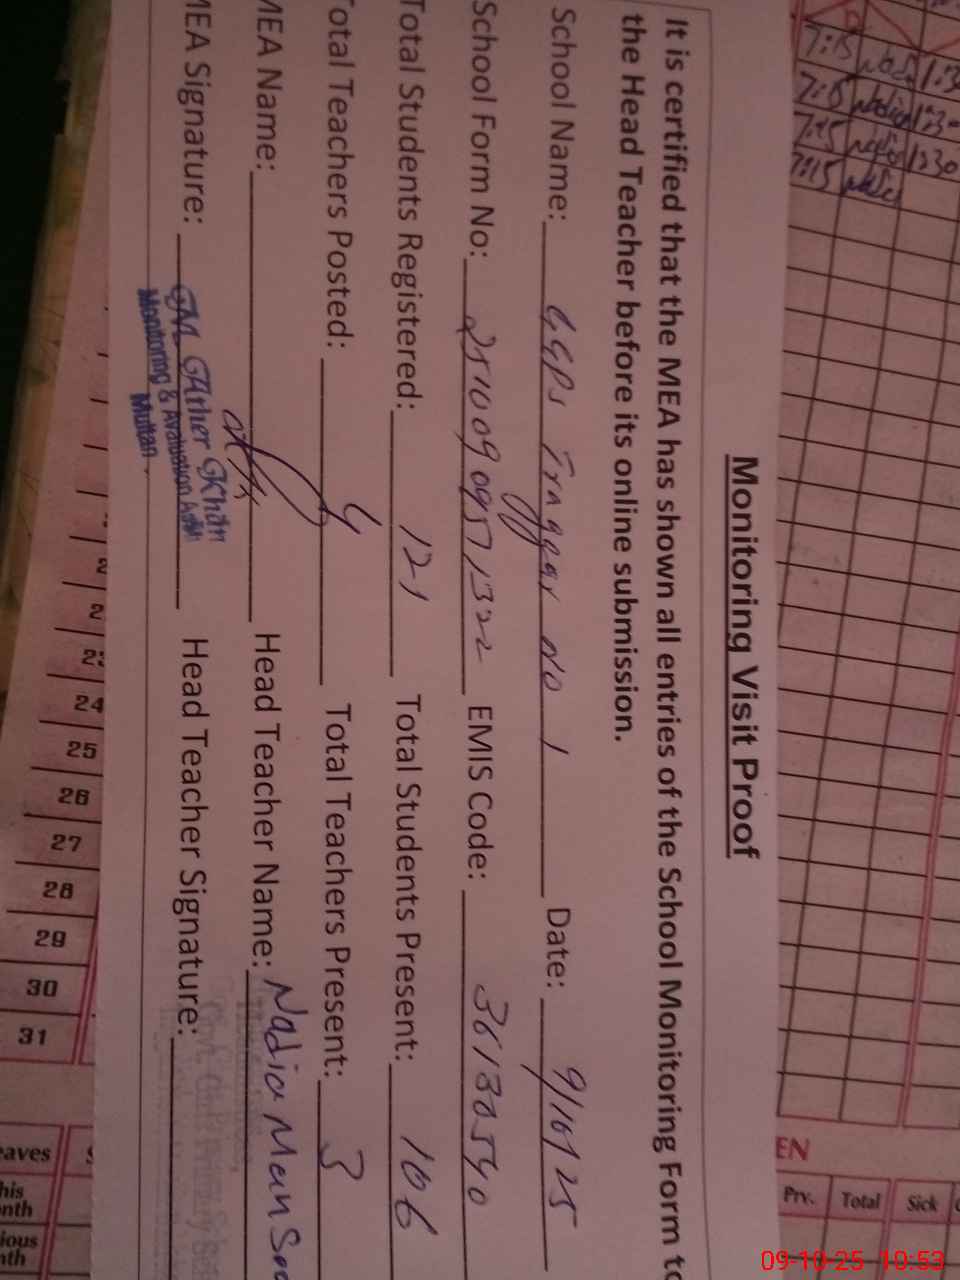 Monitoring Visit Proof
It is certified that the MEA has shown all entries of the School Monitoring Form to
the Head Teacher before its online submission.
School Name: GGPS Traggar No 1 Date: 9/10/25
School Form No: 25100909571322 EMIS Code: 36130540
Total Students Registered: 121 Total Students Present: 106
Total Teachers Posted: 4 Total Teachers Present: 3
MEA Name: Head Teacher Name: Nadia
MEA Signature: Head Teacher Signature:
GM Ather Khan
Monitoring & Avaluation Asstt
Multan.
7:15 1:30
7:15 Nadia 1:30
7:15 1:30
7:15
24
25
26
27
28
29
30
31
Prv. Total Sick
09-10-25 10:53